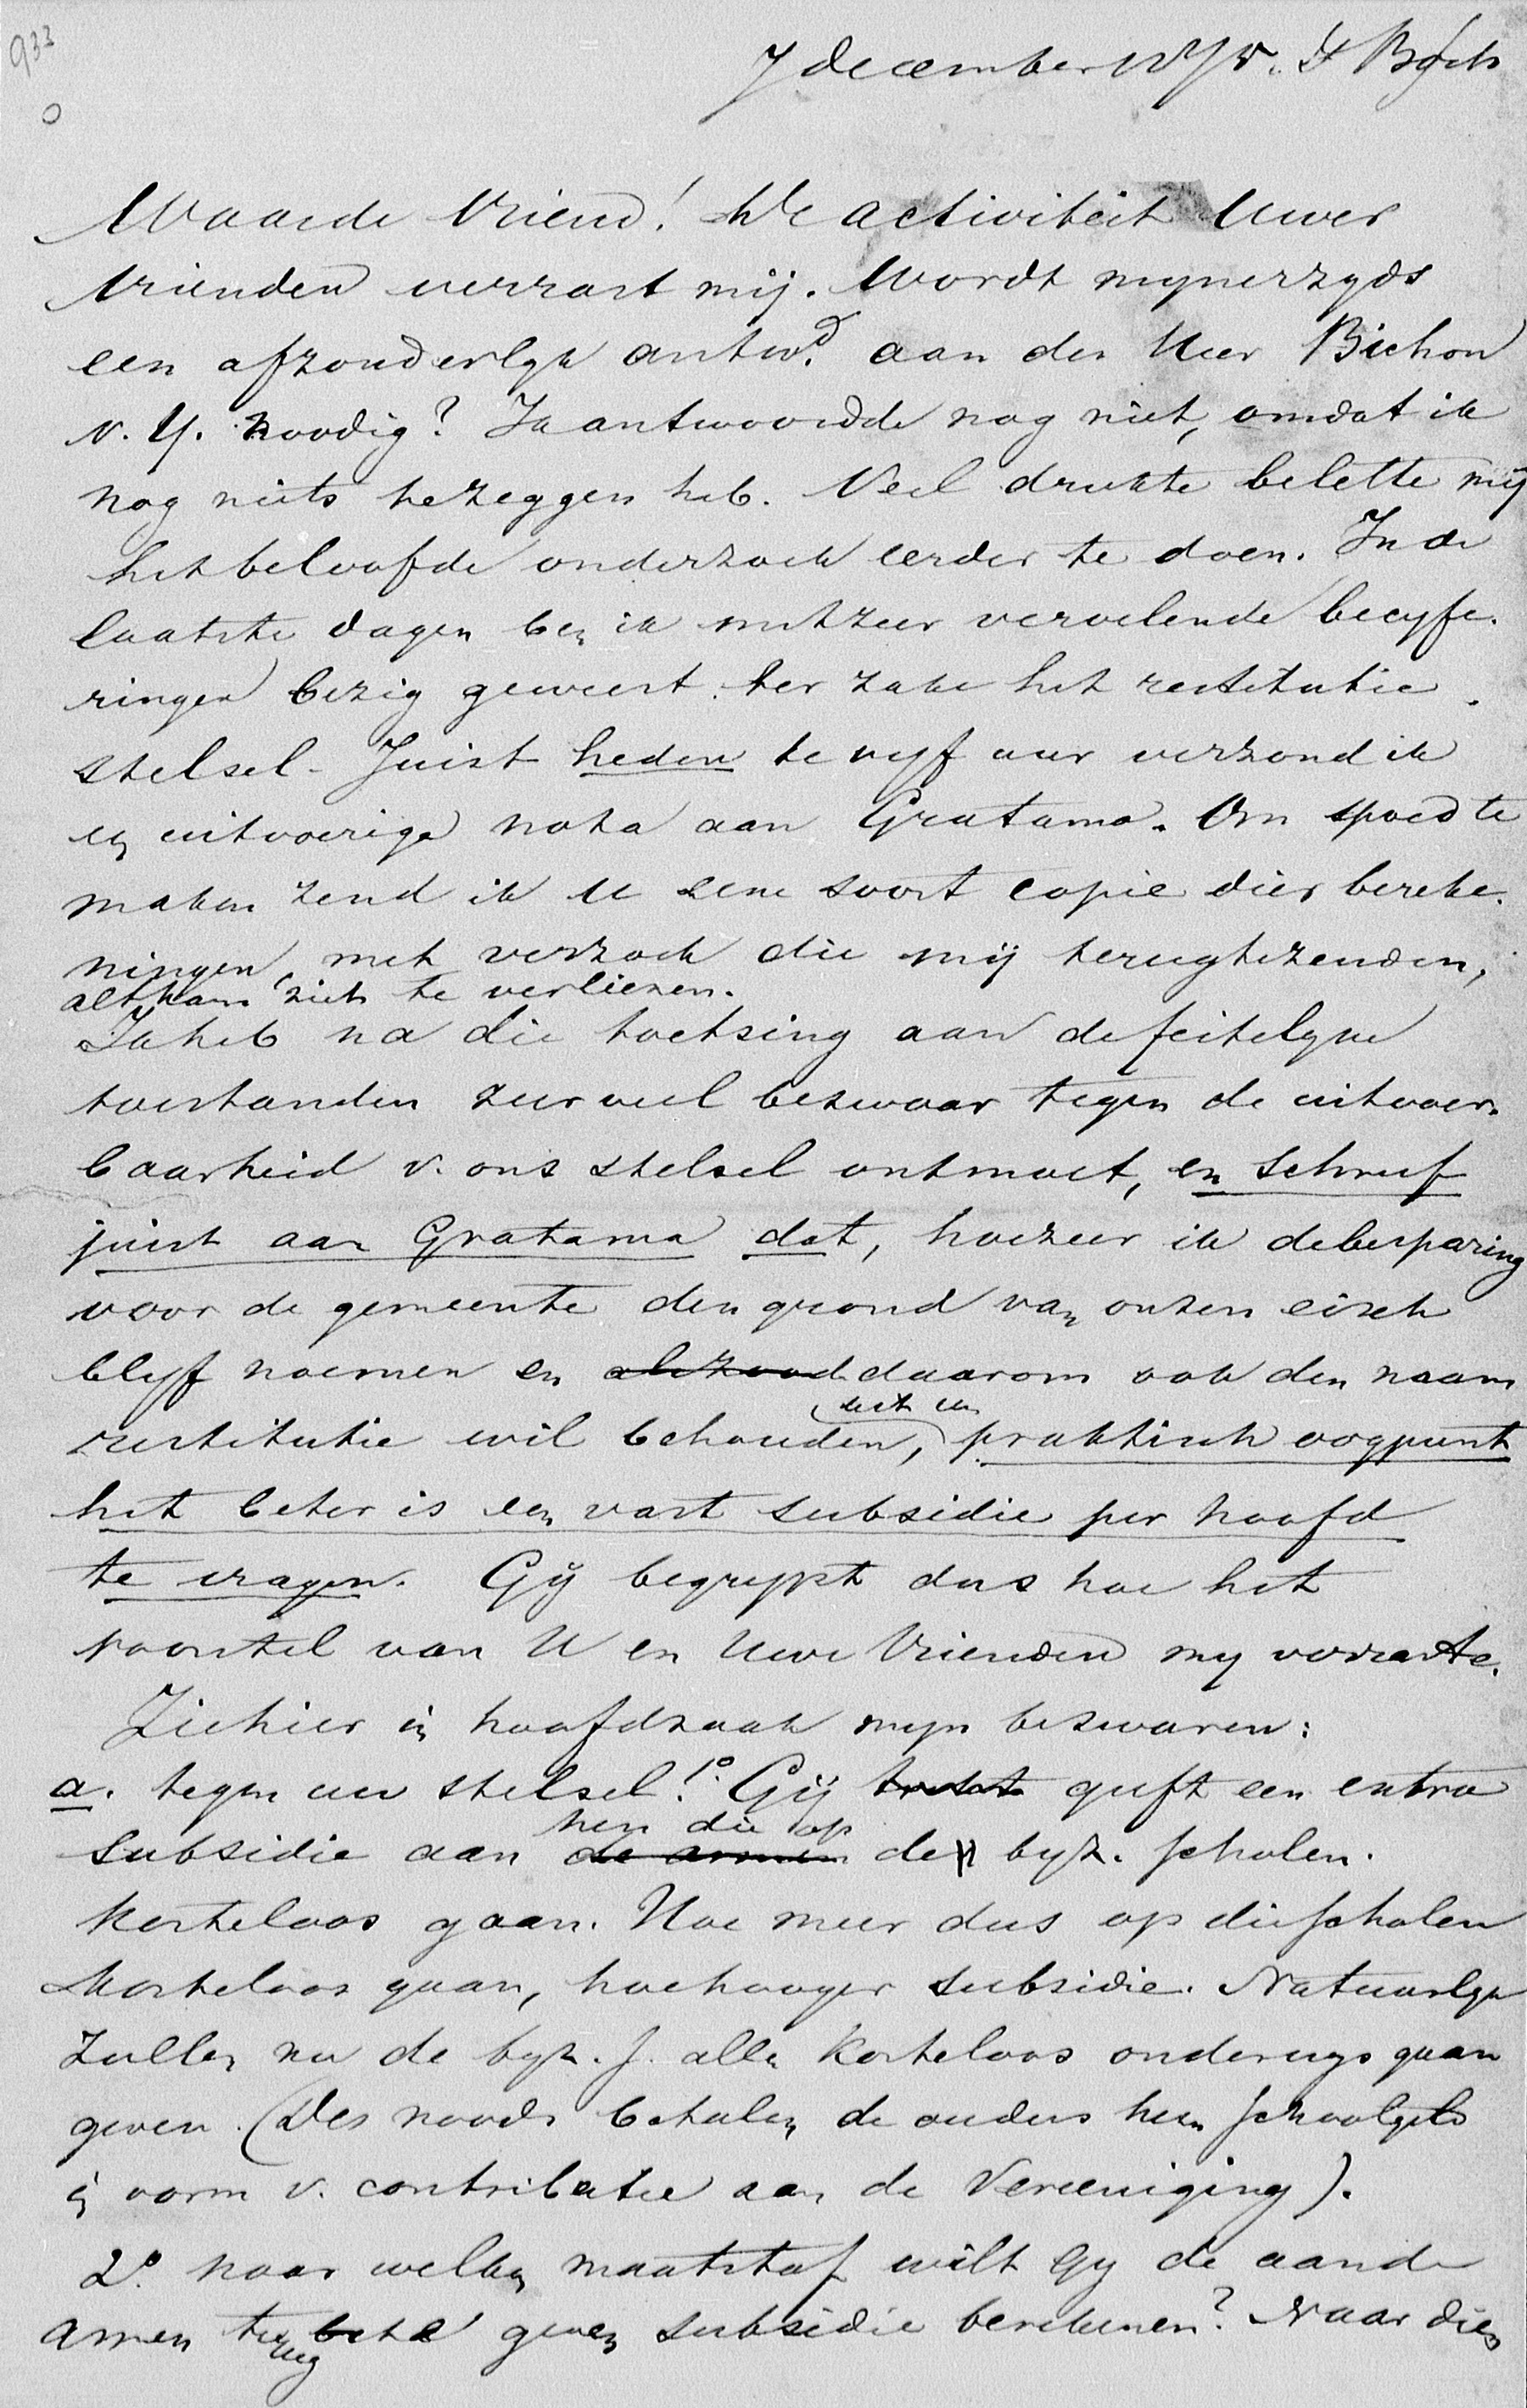 933
0
7 december
Waarde Vriend! De activiteit Uwer
Vrienden verrast mij. Wordt mynerzyds
een afzonderlyk antwd. aan den Heer Bichon
v. Y. noodig? Ik antwoordde nog niet, omdat ik
nog niets te zeggen heb. Veel drukte belette mij
het beloofde onderzoek eerder te doen. In de
laatste dagen ben ik met zeer vervelende becyfe-
ringen bezig geweest ter zake het restitutie-
stelsel. Juist heden te vyf uur verzond ik
een uitvoerige nota aan Gratama. Om spoed te
maken zend ik U eene soort copie dier bereke-
ningen, met verzoek die mij terug te zenden,
althans niet te verliezen.
Ik heb na die toetsing aan de feitelyke
toestanden zeer veel bezwaar tegen de uitvoer-
baarheid v. ons stelsel ontmoet, en schreef
juist aan Gratama dat, hoezeer ik de besparing
voor de gemeente den grond van onzen eisch
blyf noemen en daarom ook den naam
uit een
restitutie wil behouden, praktisch oogpunt
het beter is een vast subsidie per hoofd
te vragen. Gij begrypt dus hoe het
voorstel van U en Uwe Vrienden my verraste.
Ziehier in hoofdzaak myn bezwaren:
a. tegen uw stelsel! 1o. Gij geeft een extra
hen die op
subsidie aan de armen de byz. scholen.
kosteloos gaan. Hoe meer dus op die scholen
kosteloos gaan, hoe hooger subsidie. Natuurlyk
zullen nu de byz. s. alle kosteloos onderwys gaan
geven. (Des noods betalen de ouders hun schoolgeld
in vorm v. contributie aan de Vereeniging).
2o. naar welken maatstaf wilt Gy de aan de
armen terug te geven subsidie berekenen? Naar dien